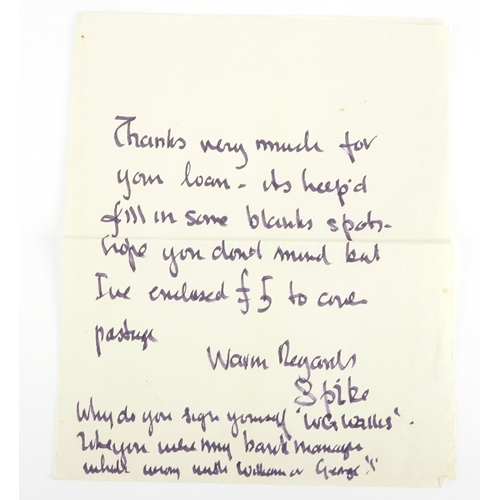 Thanks very much for
your loan - its help'd
fill in some blanks spots -
hope you dont mind but
I've enclosed £5 to cover
postage
Warm Regards
Spike
Why do you sign yourself "W.G. Wallis".
Like you were my bank manager
whats wrong with William or George?